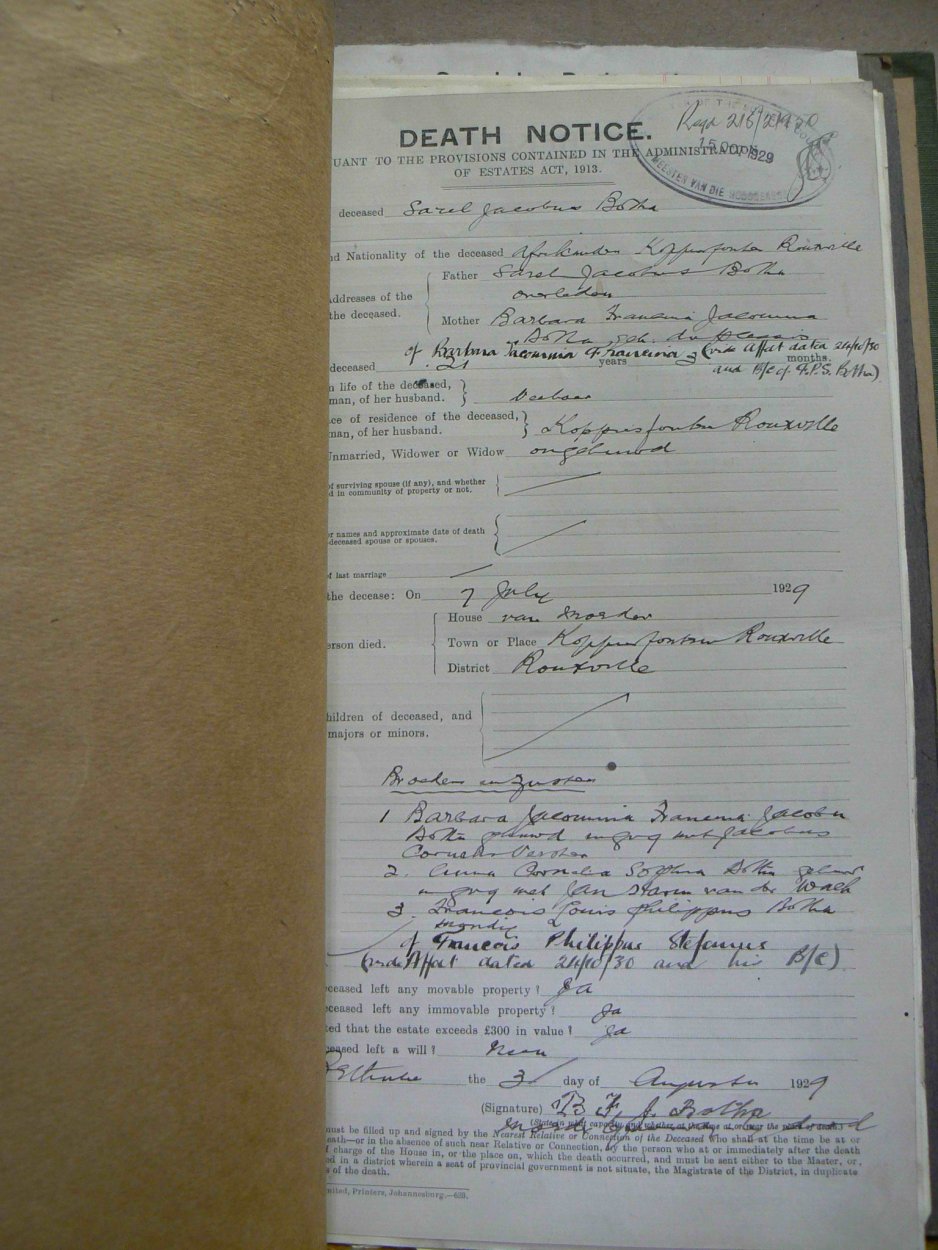 DEATH NOTICE.
UANT TO THE PROVISIONS CONTAINED IN THE ADMINISTRATION
OF ESTATES ACT, 1913.
15 OCT 1929
MEESTER VAN DIE
deceased Sarel Jacobus Botha
d Nationality of the deceased Afrikander Roux­ville
Father Sarel Jacobus Botha
overleden
ddresses of the
the deceased.
Mother Barbara Francina Jacomina
Botha, geb. du Plessis
of Barbara Jacomina Francina (vide Affat dated 24/10/30
deceased 21 years months.
and B/c of F.P.S. Botha)
n life of the deceased,
man, of her husband.
ce of residence of the deceased,
man, of her husband. Rouxville
Unmarried, Widower or Widow ongehuwd
of surviving spouse (if any), and whether
d in community of property or not.
r names and approximate date of death
deceased spouse or spouses.
f last marriage
the decease: On 7 July 1929
House van moeder
erson died. Town or Place Rouxville
District Rouxville
hildren of deceased, and
majors or minors.
Broeders en Zusters
1 Barbara Jacomina Francina Jacoba
Botha gehuwd in gvg met Jacobus
Cornelis
2. Anna Cornelia Sophia Botha gehuwd
in gvg met Jan van der Walt
3. Francois Louis Philippus Botha
mondig
of Francois Philippus Stefanus
(vide Affat dated 24/10/30 and his B/c)
ceased left any movable property? Ja
ceased left any immovable property? Ja
ted that the estate exceeds £300 in value? Ja
ceased left a will? Neen
the 3 day of Augustus 1929
(Signature) B. F. J. Botha
(State in what capacity and whether at the time at or near the place of death)
must be filled up and signed by the Nearest Relative or Connection of the Deceased who shall at the time be at or
eath—or in the absence of such near Relative or Connection, by the person who at or immediately after the death
f charge of the House in, or the place on, which the death occurred, and must be sent either to the Master, or,
ed in a district wherein a seat of provincial government is not situate, the Magistrate of the District, in duplicate
s of the death.
imited, Printers, Johannesburg.—628.